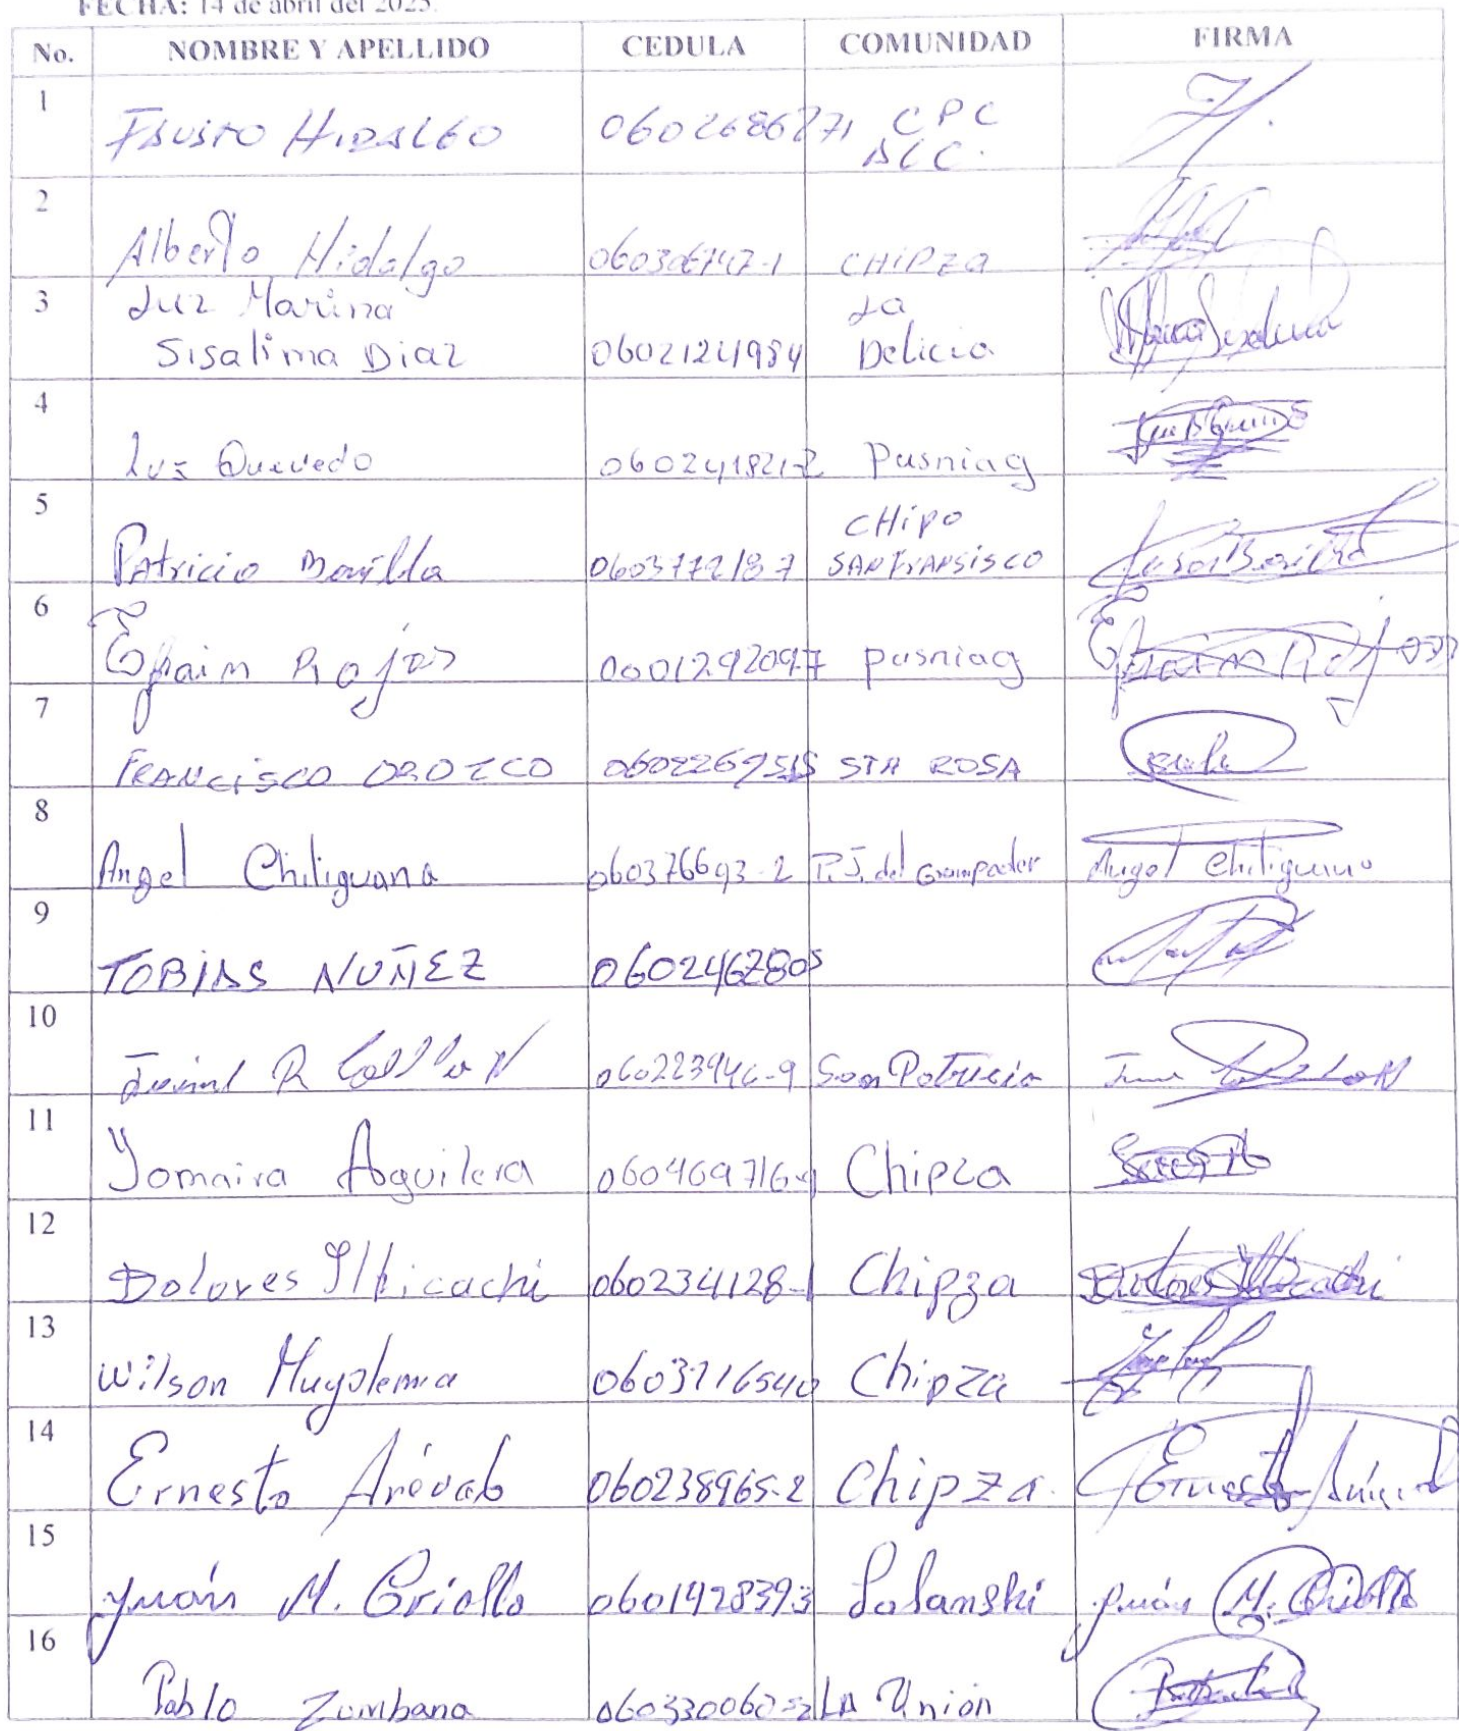 FECHA: 14 de abril del 2023.
No. NOMBRE Y APELLIDO CEDULA COMUNIDAD FIRMA
1 FAUSTO HIDALGO 0602686271 CPC
ALC.
2 Alberto Hidalgo 060306747-1 CHIPZA
3 Luz Marina La
Sisalima Diaz 0602124984 Delicia
4 Luz Quevedo 060241821-2 Pusniag
5 CHIPO
Patricio Bonilla 060377218-7 SAN FRANSISCO
6 Efraim Rojas 0601292097 pusniag Efraim Rojas
7 FRANCISCO OROZCO 0602269515 STA ROSA
8 Angel Chiliguana 060376693-2 P.J. del Angel Chiliguano
9 TOBIAS NUÑEZ 0602462805
10 R 060223946-9 San Patricio
11 Yomaira Aguilera 060469716-9 Chipza
12 Dolores Illicachi 060234128-1 Chipza Dolores Illicachi
13 Wilson Muyolema 0603716540 Chipza
14 Ernesto Arévalo 060238965-2 Chipza. Ernesto
15 Juán M. Criollo 0601428393 Juán M. Criollo
16 Pablo Zumbana 060330060-2 LA Unión